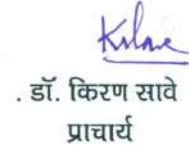 . डॉ. किरण सावे
प्राचार्य